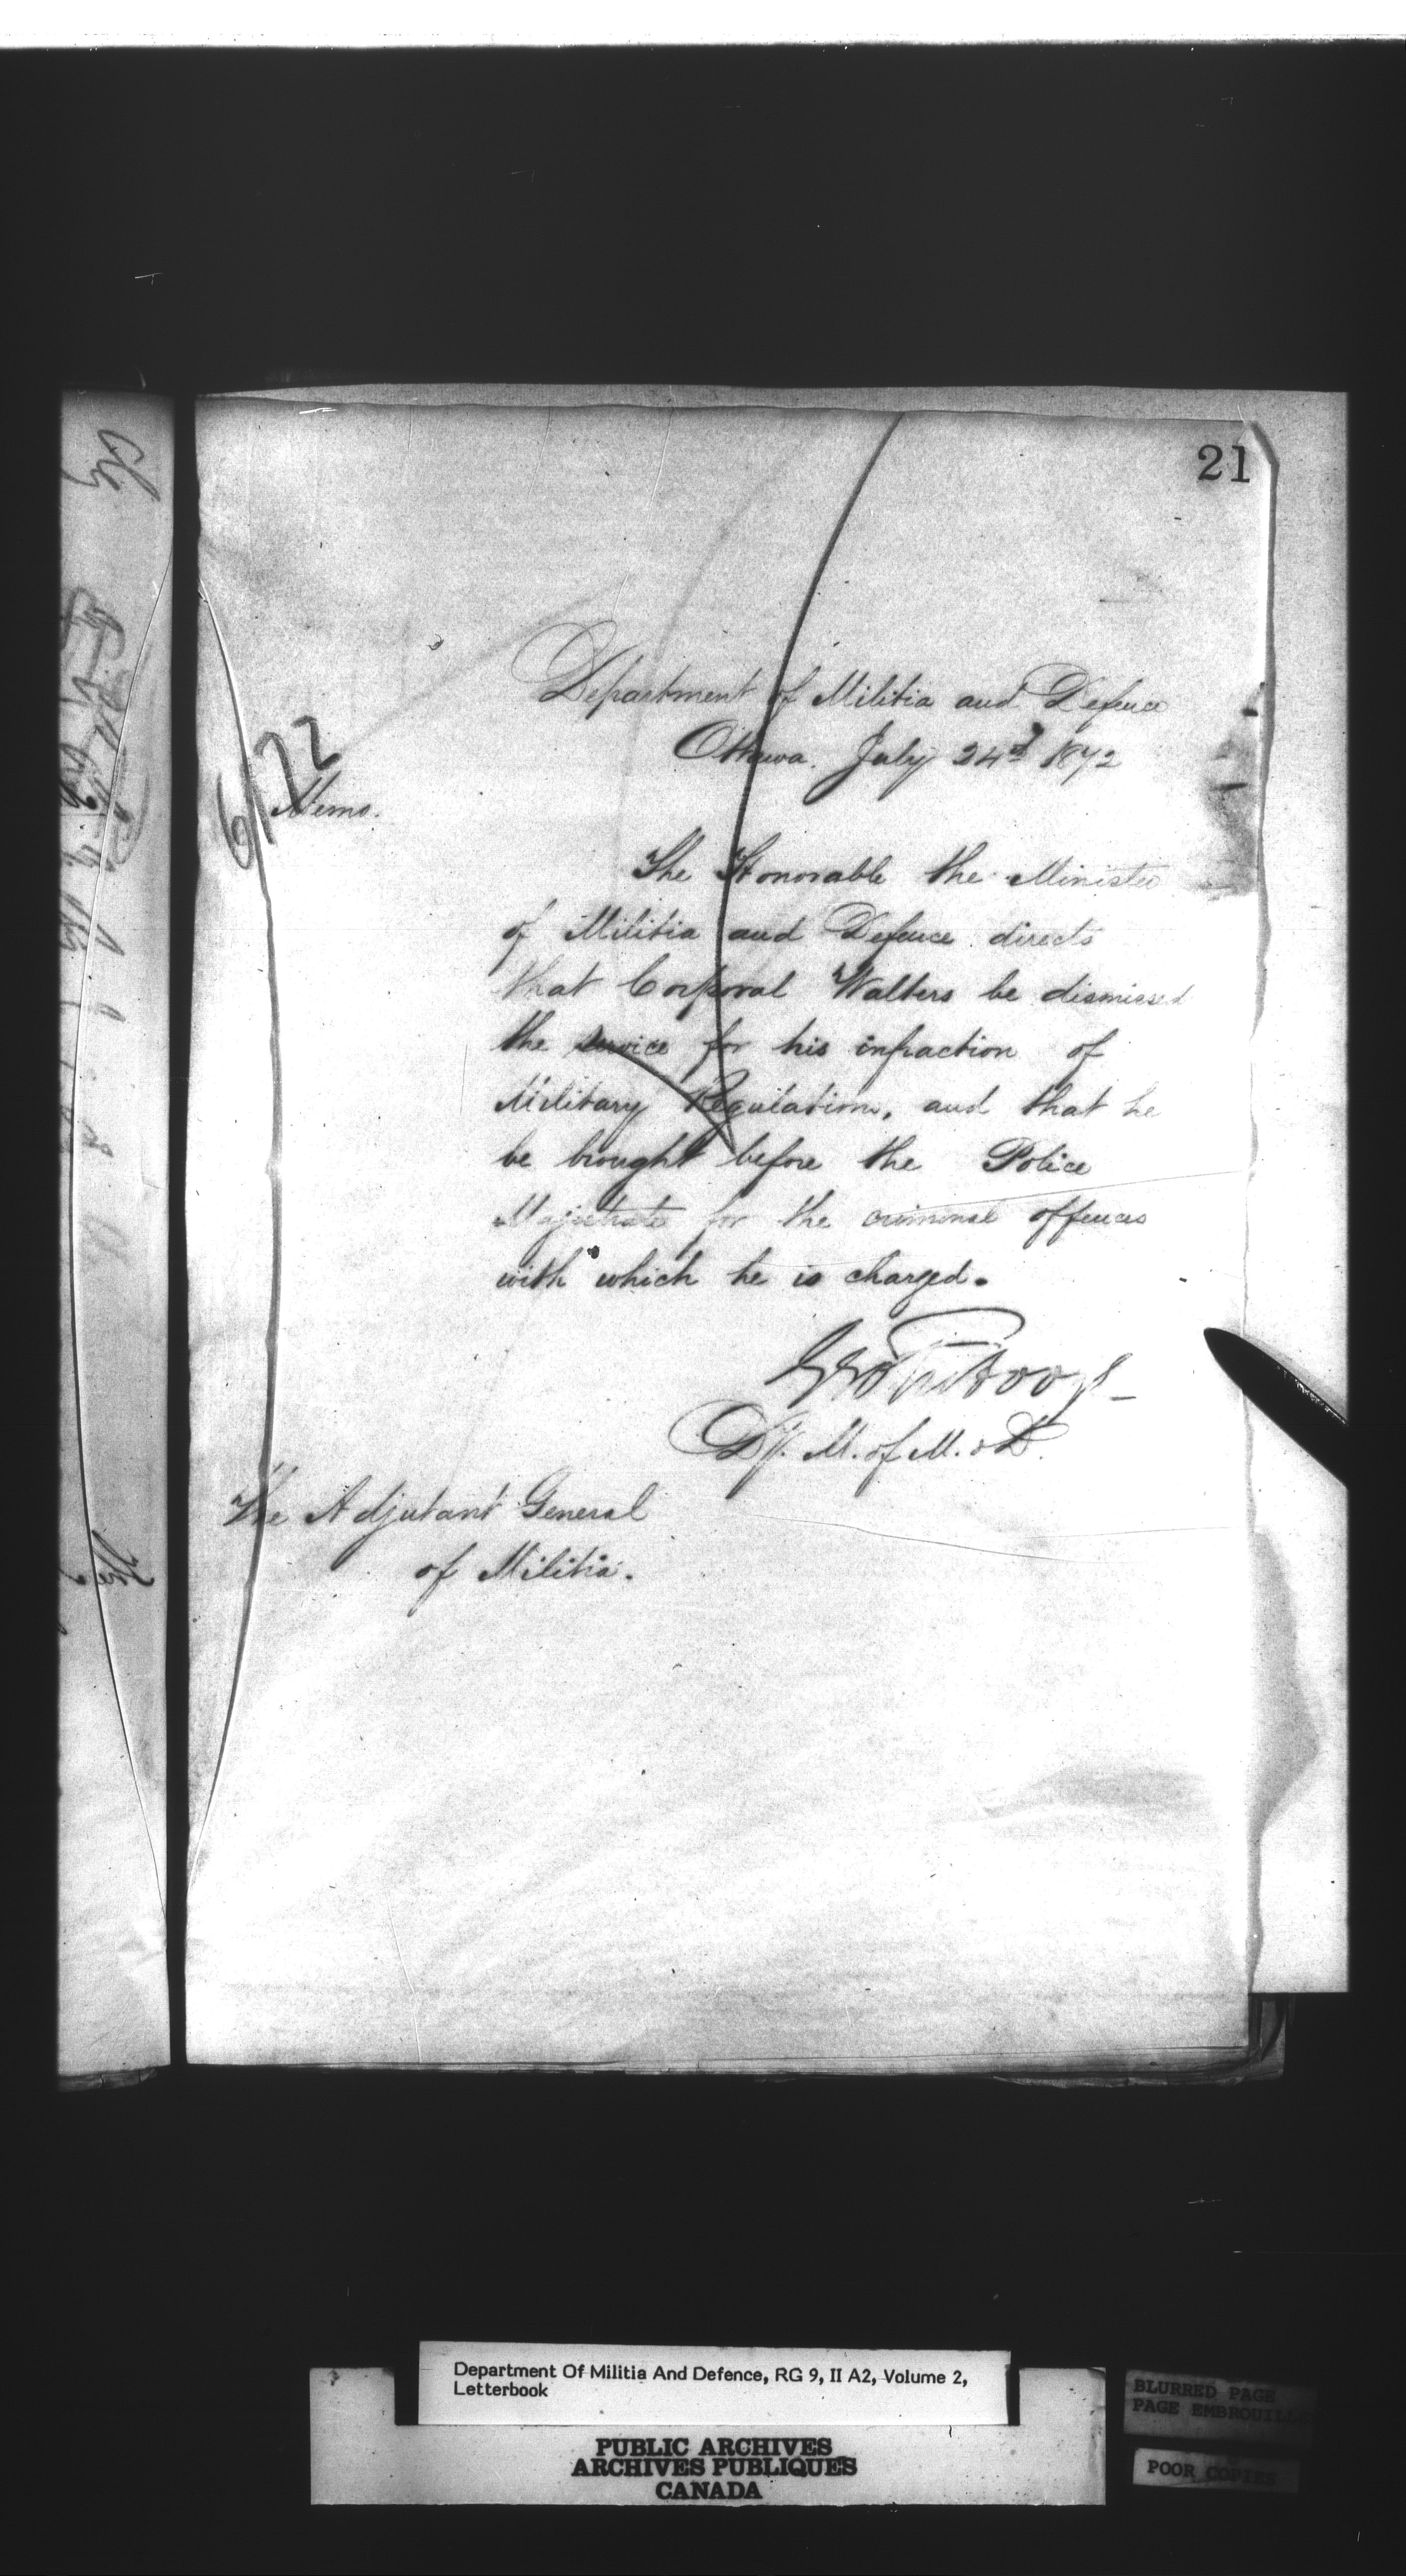 21
Department of Militia and Defence
Ottawa. July 24th 1872
6172
Memo.
The Honorable the Minister
of Militia and Defence directs
that Corporal Walters be dismissed
the service for his infraction of
Military Regulations, and that he
be brought before the Police
Magistrate for the criminal offences
with which he is charged.
Dy. M. of M. & D.
The Adjutant General
of Militia.
Department Of Militia And Defence, RG 9, II A2, Volume 2,
Letterbook
PUBLIC ARCHIVES
ARCHIVES PUBLIQUES
CANADA
BLURRED PAGE
PAGE EMBROUILLÉE
POOR COPIES